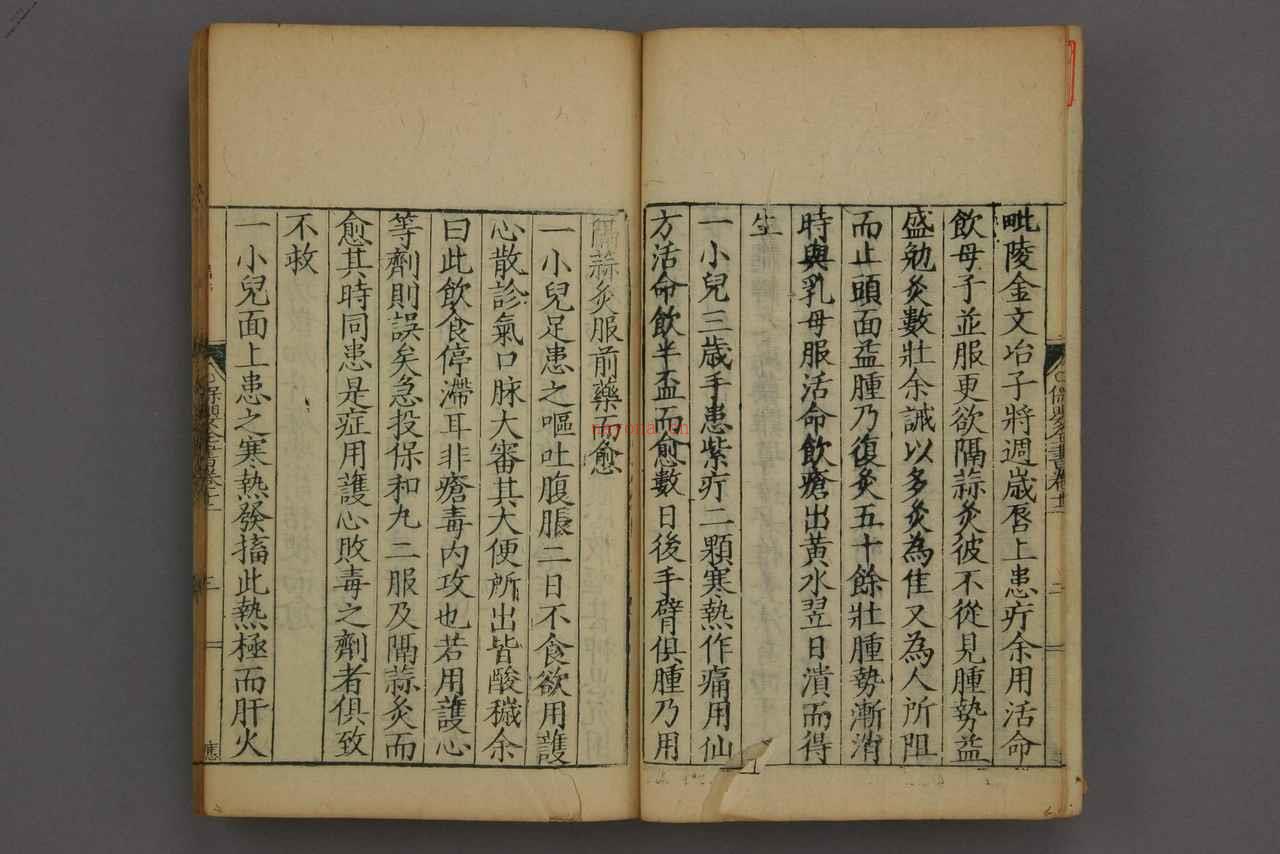 毗陵金文冶子將週歲唇上患疔余用活命
飲母子並服更欲隔蒜灸彼不從見腫勢益
盛勉灸數壯余誡以多灸為隹又為人所阻
而止頭面益腫乃復灸五十餘壯腫勢漸消
時與乳母服活命飲瘡出黃水翌日潰而得
生
一小兒三歲手患紫疔二顆寒熱作痛用仙
方活命飲半盃而愈數日後手臂俱腫乃用
隔蒜灸服前藥而愈
一小兒足患之嘔吐腹脹二日不食欲用護
心散診氣口脉大審其大便所出皆酸穢余
曰此飲食停滯耳非瘡毒内攻也若用護心
等劑則誤矣急投保和丸二服及隔蒜灸而
愈其時同患是症用護心敗毒之劑者俱致
不救
一小兒面上患之寒熱發搐此熱極而肝火
保嬰全書卷十二
二
三
應